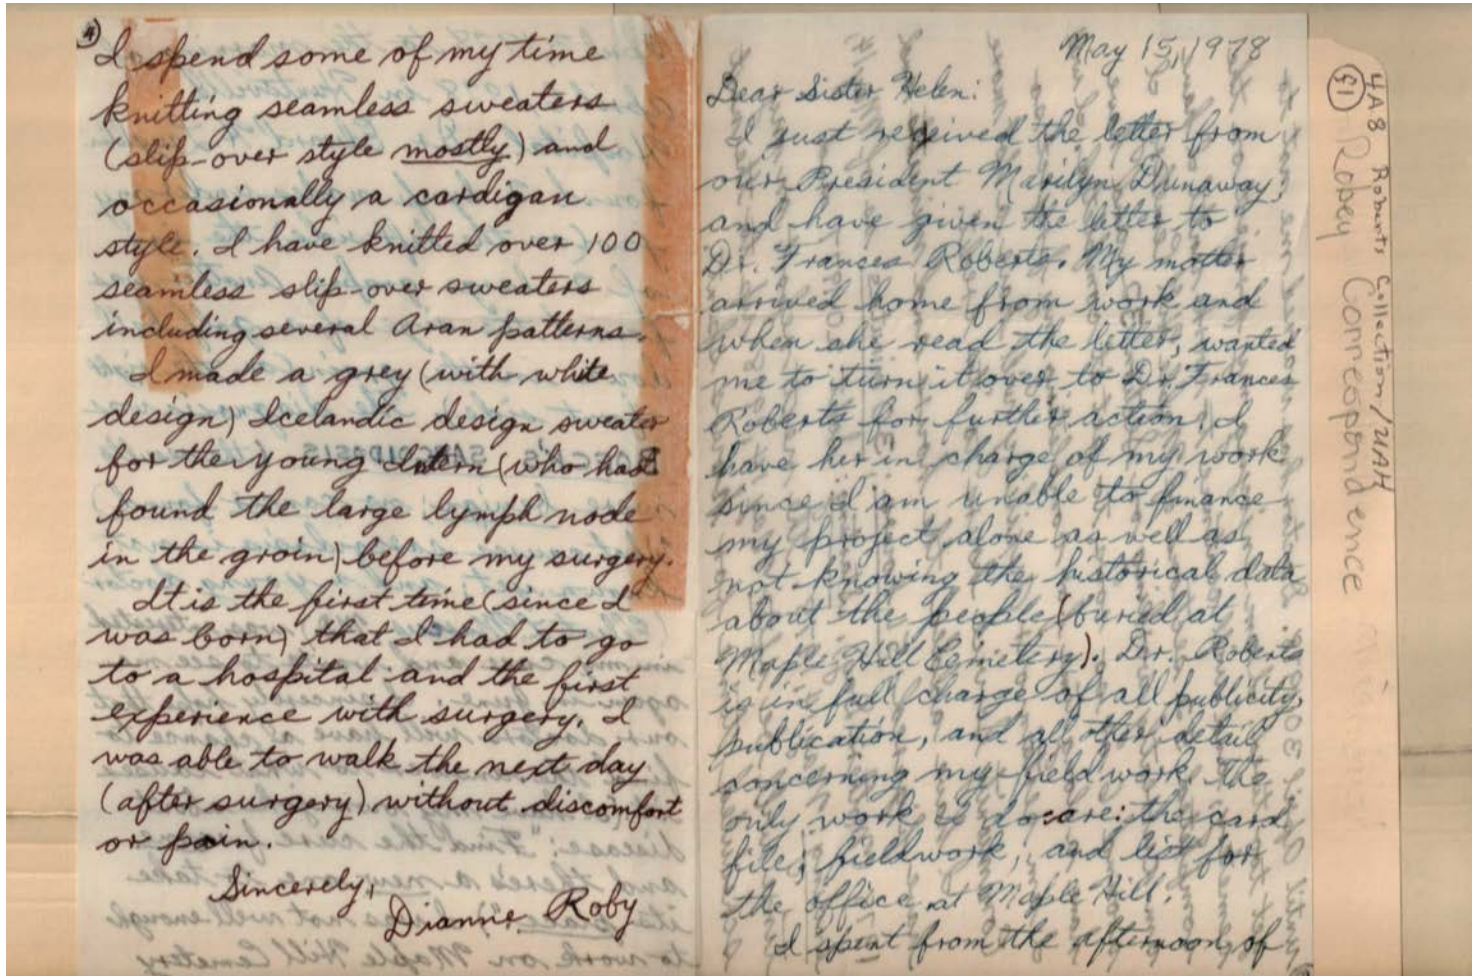 4
I spend some of my time
knitting seamless sweaters
(slip-over style mostly) and
occasionally a cardigan
style. I have knitted over 100
seamless slip-over sweaters
including several Aran patterns.
I made a grey (with white
design) Icelandic design sweater
for the young Intern (who had
found the large lymph node
in the groin) before my surgery.
It is the first time (since I
was born) that I had to go
to a hospital and the first
experience with surgery. I
was able to walk the next day
(after surgery) without discomfort
or pain.
Sincerely,
Dianne Roby
May 15, 1978
Dear Sister Helen:
I just received the letter from
our President Marilyn Dunaway,
and have given the letter to
Dr. Frances Roberts. My mother
arrived home from work and
when she read the letter, wanted
me to turn it over to Dr. Frances
Roberts for further action. I
have her in charge of my work
since I am unable to finance
my project alone as well as
not knowing the historical data
about the people (buried at
Maple Hill Cemetery). Dr. Roberts
is in full charge of all publicity,
publication, and all other detail
concerning my field work. The
only work I do are: the card
file; fieldwork; and list for
the office at Maple Hill.
I spent from the afternoon of
4A8 Roberts Collection/UAH
£1 Robey Correspondence